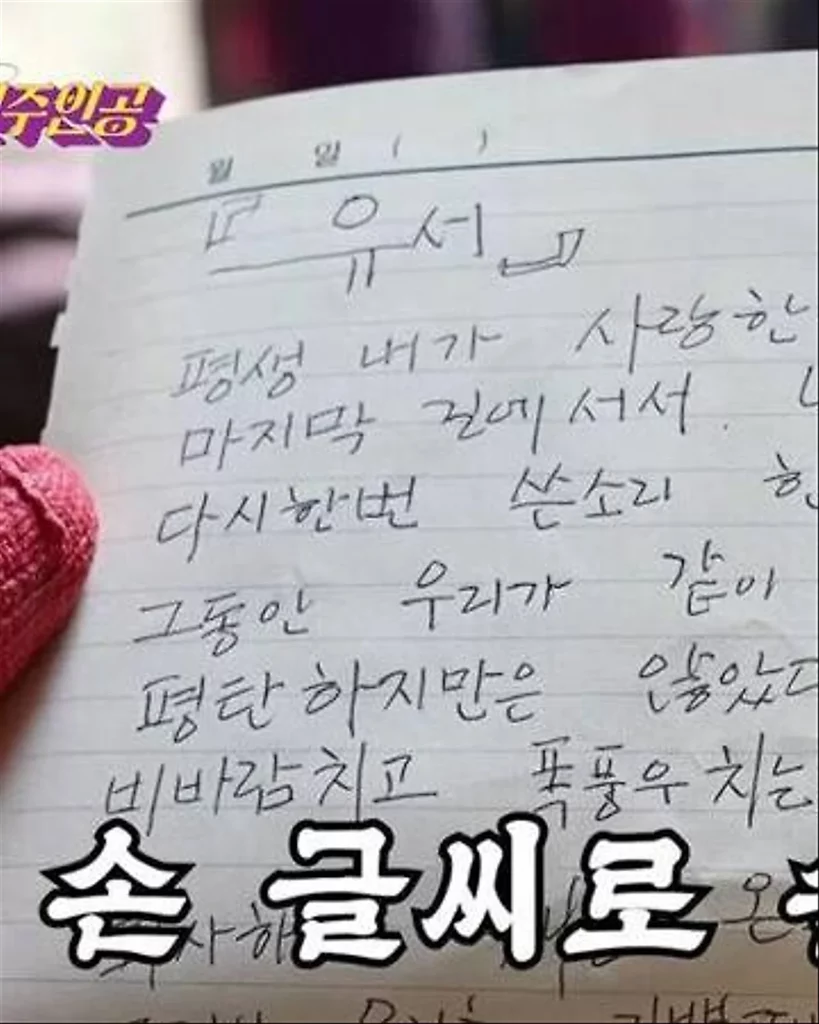 주인공
월 일 ( )
『유서』
평생 내가 사랑한
마지막 길에 서서.
다시한번 쓴소리
그동안 우리가 같이
평탄하지만은 않았다
비바람치고 폭풍우 치는
손 글씨로